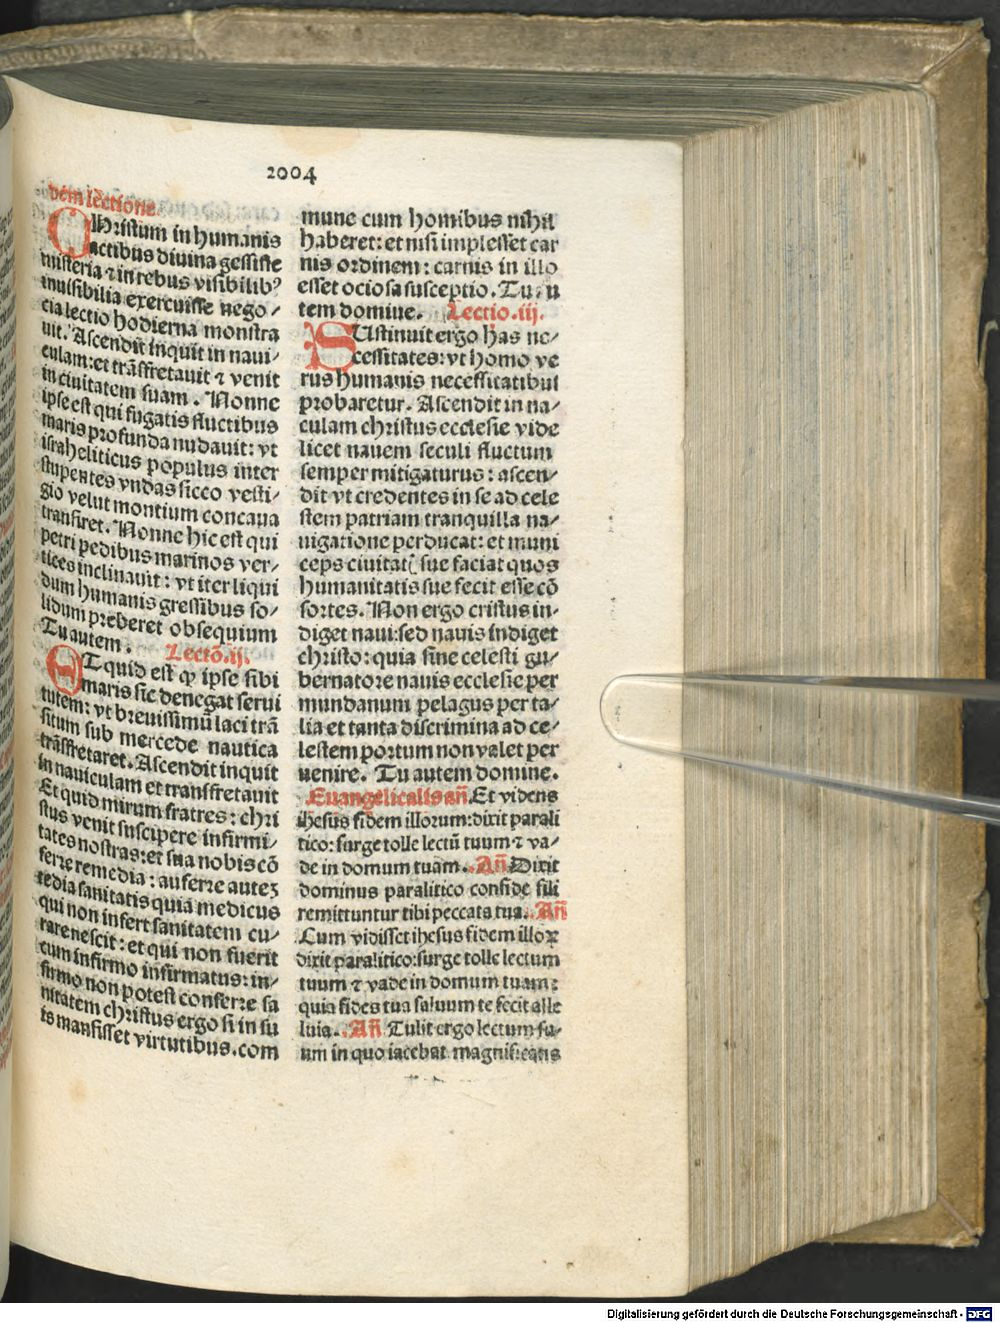 2004
dem lectione
CHristum in humanis
actibus diuina gessisse
misteria ⁊ in rebus visibilibꝰ
inuisibilia exercuisse nego⸗
cia lectio hodierna monstra
uit. Ascendit inquit in naui⸗
culam: et trāssretauit ⁊ venit
in ciuitatem suam. Nonne
ipse est qui fugatis fluctibus
maris profunda nudauit: vt
israheliticus populus inter
stupentes vndas sicco vesti⸗
gio velut montium concaua
transiret. Nonne hic est qui
petri pedibus marinos ver⸗
tices inclinauit: vt iter liqui
dum humanis gressibus so⸗
lidum preberet obsequium
Tu autem. Lectō.ij.
ET quid est ꝙ ipse sibi
maris sic denegat serui
tutem: vt breuissimū laci trā
situm sub mercede nautica
trāsfretaret. Ascendit inquit
in nauiculam et transfretauit
Et quid mirum fratres: chri
stus venit suscipere infirmi⸗
tates nostras: et sua nobis cō
ferre remedia: auferre autez
tedia sanitatis quia medicus
qui non infert sanitatem cu⸗
rare nescit: et qui non fuerit
cum infirmo infirmatus: in⸗
firmo non potest conferre sa
nitatem christus ergo si in su
is mansisset virtutibus. com
mune cum homibus nihil
haberet: et nisi implesset car
nis ordinem: carnis in illo
esset ociosa susceptio. Tu au
tem domine. Lectio.iij.
SUstinuit ergo has ne⸗
cessitates: vt homo ve
rus humanis necessitatibus
probaretur. Ascendit in na⸗
culam christus ecclesie vide
licet nauem seculi fluctum
semper mitigaturus: ascen⸗
dit vt credentes in se ad cele
stem patriam tranquilla na⸗
uigatione perducat: et muni
ceps ciuitatis sue faciat quos
humanitatis sue fecit esse cō
sortes. Non ergo cristus in⸗
diget naui: sed nauis indiget
christo: quia sine celesti gu⸗
bernatore nauis ecclesie per
mundanum pelagus per ta⸗
lia et tanta discrimina ad ce⸗
lestem portum non valet per
uenire. Tu autem domine.
Euangelicalis añ. Et videns
ihesus fidem illorum: dixit parali
tico: surge tolle lectū tuum ⁊ va⸗
de in domum tuam. Añ Dixit
dominus paralitico confide fili
remittuntur tibi peccata tua. Añ
Cum vidisset ihesus fidem illoꝝ
dixit paralitico: surge tolle lectum
tuum ⁊ vade in domum tuam:
quia fides tua saluum te fecit alle
luia. Añ Tulit ergo lectum su⸗
um in quo iacebat magnificans
Digitalisierung gefördert durch die Deutsche Forschungsgemeinschaft - DFG